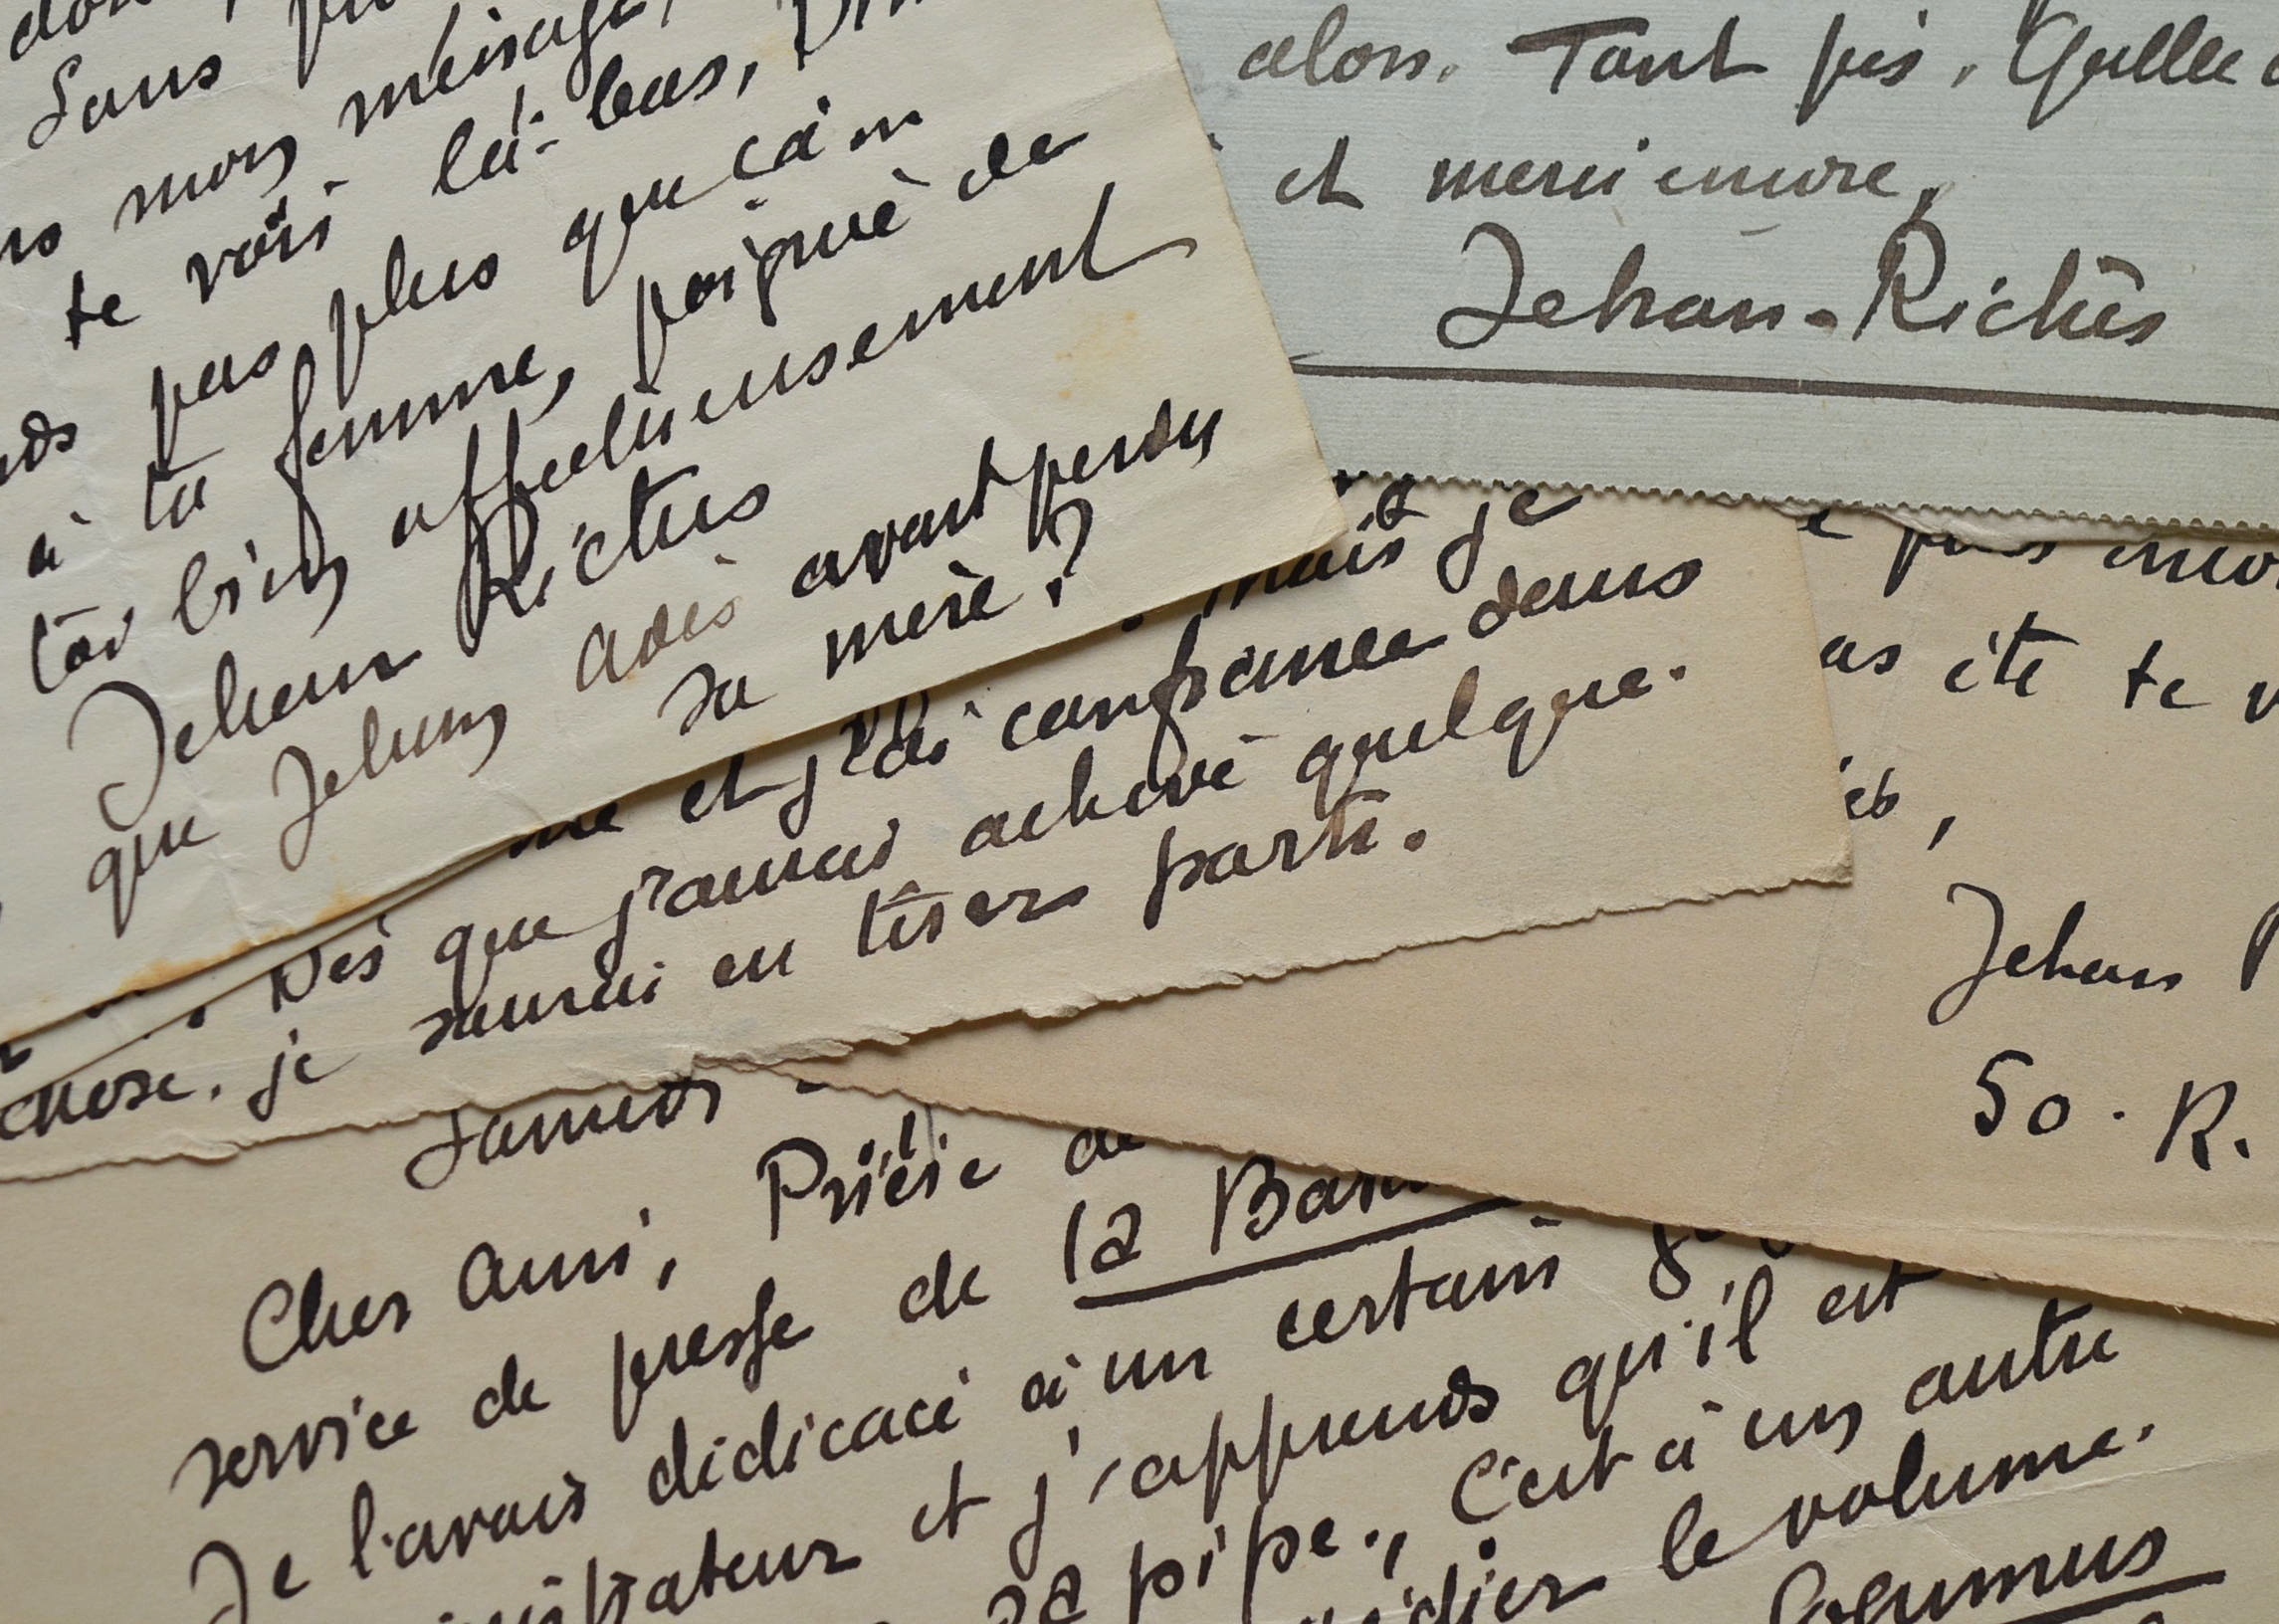 Sans
mon ménage,
te vois là-bas,
pas plus que ça
à ta femme, poignée de
toi bien affectueusement
Jehan Rictus
que Jehan Adès avait perdu
sa mère?
alors. Tant pis. Quelle
et merci encore,
Jehan-Rictus
mais je
et j'ai confiance dans
Dès que j'aurai achevé quelque
chose. je saurai en tirer parti.
pas
as été te
Jehan
50. R.
Samedi
Cher Ami, Prière de
service de presse de la
Je l'avais dédicacé à un certain
et j'apprends qu'il est
sa pipe., C'est à un autre
le volume.